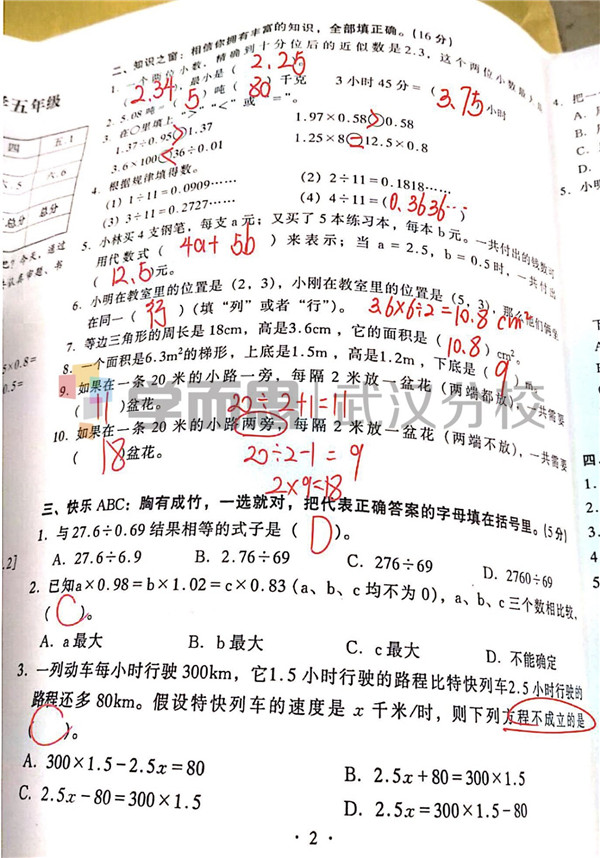 二、知识之窗：相信你拥有丰富的知识，全部填正确。（16分）
1. 一个两位小数，精确到十分位后的近似数是2.3，这个两位小数最大是
（2.34），最小是（2.25）。
2. 5.08吨=（5）吨（80）千克 3小时45分=（3.75）小时
3. 在○里填上“>”“<”或“=”。
1.37÷0.95>1.37 1.97×0.58>0.58
3.6×100 36÷0.01 1.25×8=12.5×0.8
4. 根据规律填得数。
（1）1÷11=0.0909…… （2）2÷11=0.1818……
（3）3÷11=0.2727…… （4）4÷11=（0.3636…）
5. 小林买4支钢笔，每支a元；又买了5本练习本，每本b元。一共付出的钱数可
用代数式（4a+5b）来表示；当a=2.5，b=0.5时，一共付出
（12.5）元。
6. 小明在教室里的位置是（2，3），小刚在教室里的位置是（5，3），那么他们俩坐
在同一（行）（填“列”或者“行”）。 3.6×6÷2=10.8cm²
7. 等边三角形的周长是18cm，高是3.6cm，它的面积是（10.8）cm²。
8. 一个面积是6.3m²的梯形，上底是1.5m，高是1.2m，下底是（9）m。
9. 如果在一条20米的小路一旁，每隔2米放一盆花（两端都放），一共需要
（11）盆花。 20÷2+1=11
10. 如果在一条20米的小路两旁，每隔2米放一盆花（两端不放），一共需要
（18）盆花。 20÷2-1=9
2×9=18
三、快乐ABC：胸有成竹，一选就对，把代表正确答案的字母填在括号里。（5分）
1. 与27.6÷0.69结果相等的式子是（D）。
A. 27.6÷6.9 B. 2.76÷69 C. 276÷69 D. 2760÷69
2. 已知a×0.98=b×1.02=c×0.83（a、b、c均不为0），a、b、c三个数相比较，
（C）。
A. a最大 B. b最大 C. c最大 D. 不能确定
3. 一列动车每小时行驶300km，它1.5小时行驶的路程比特快列车2.5小时行驶的
路程还多80km。假设特快列车的速度是x千米/时，则下列方程不成立的是
（C）。
A. 300×1.5-2.5x=80 B. 2.5x+80=300×1.5
C. 2.5x-80=300×1.5 D. 2.5x=300×1.5-80
·2·
五年级
四 五.1
六.5 六.6
总分 总分
今天，通过
5×0.8=
0.5=
.2]
4. 把一
A.
B.
C.
D.
5. 小明
四、
1.
2.
3.
学而思 武汉分校